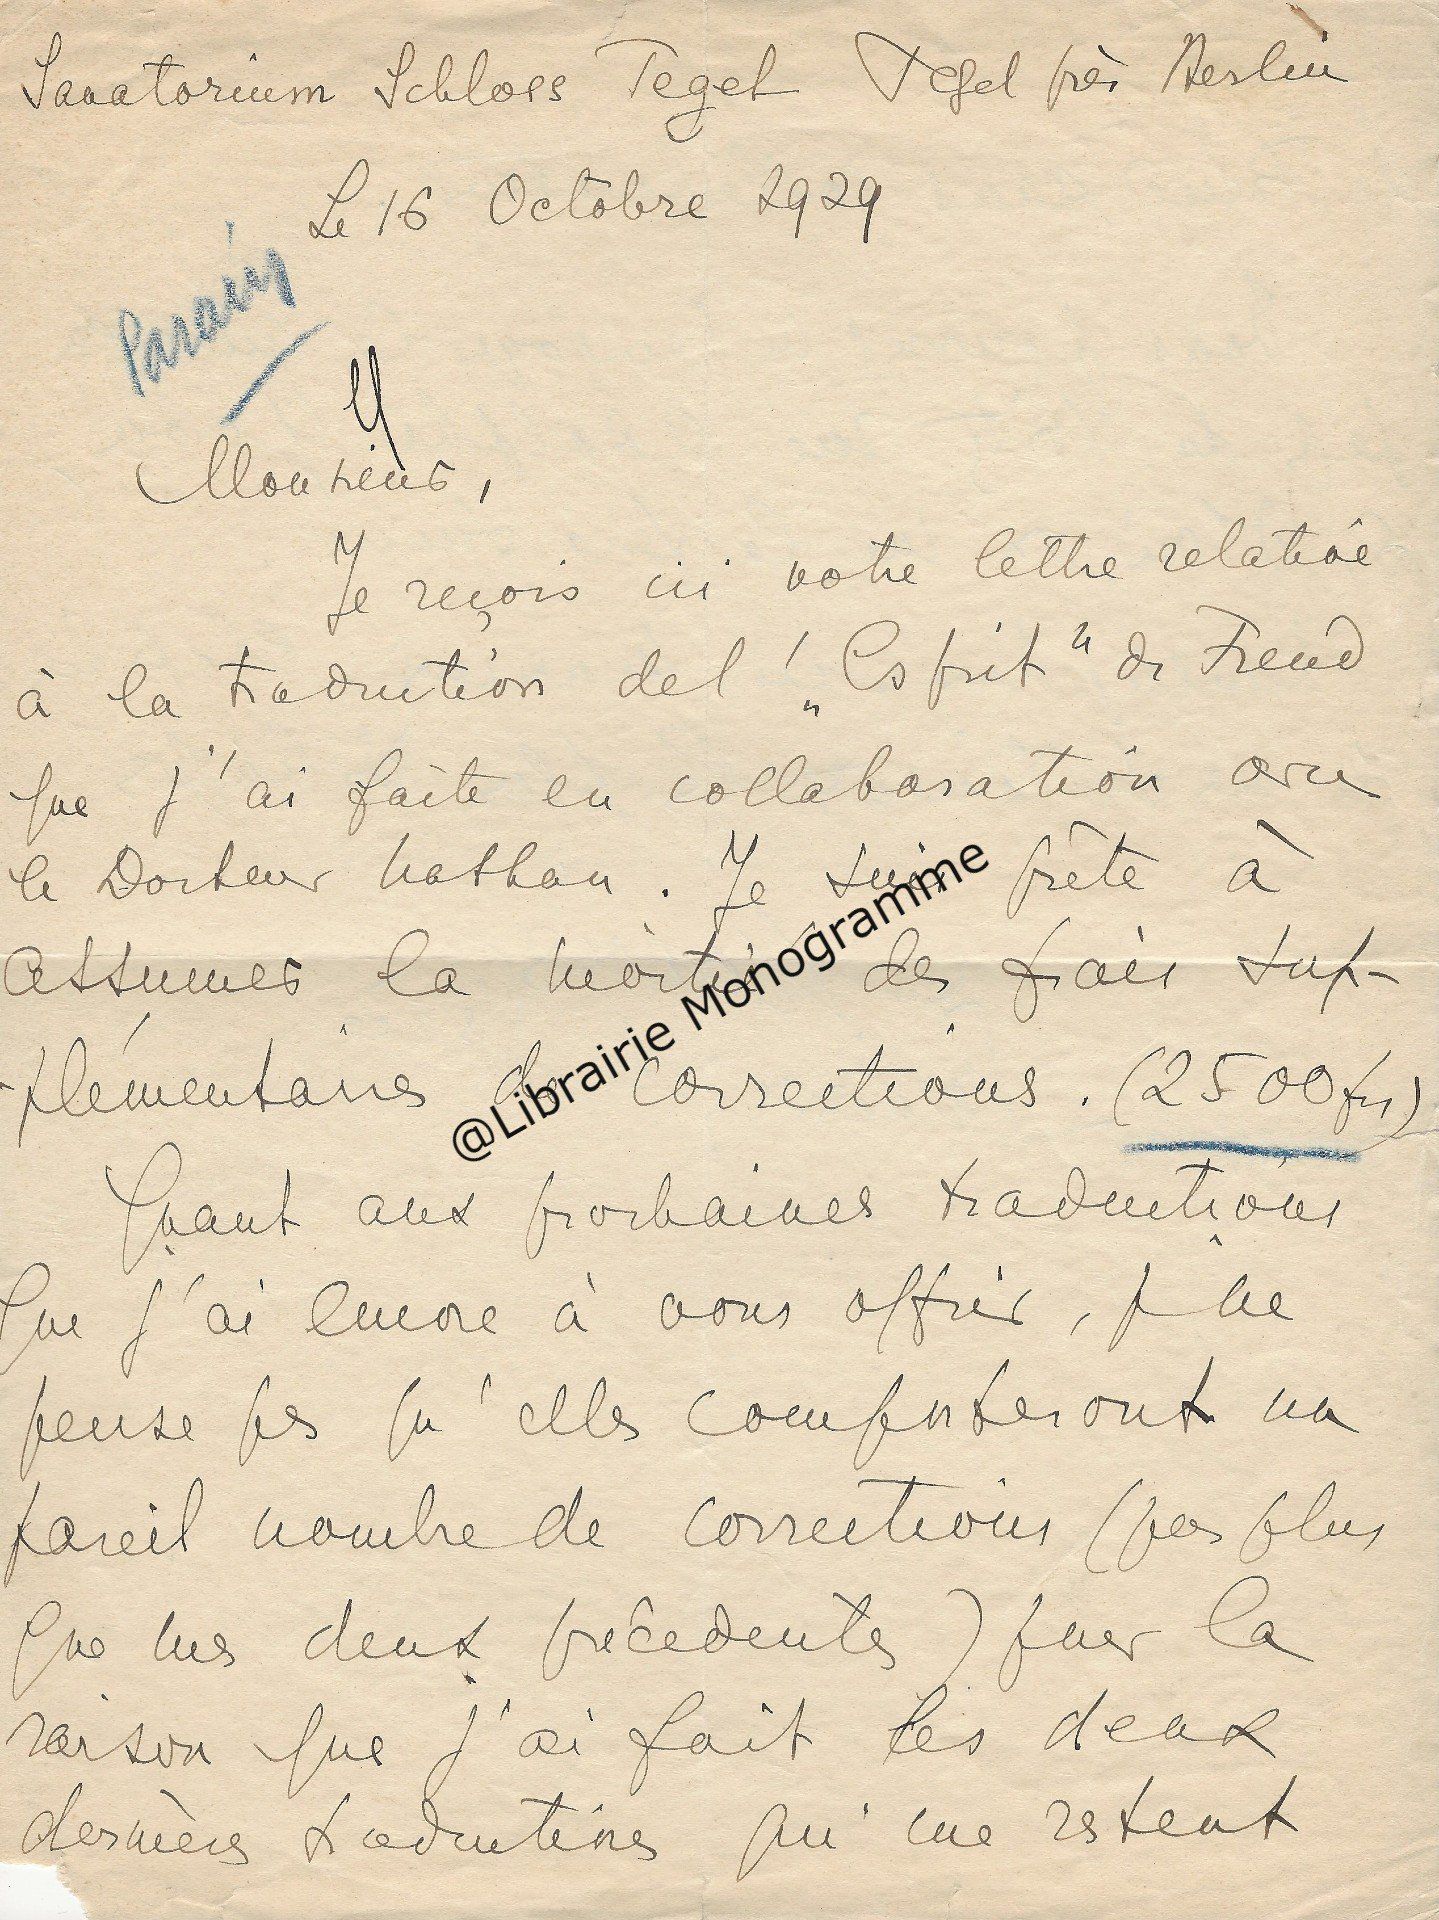 Sanatorium Schloss Tegel Tegel près Berlin
Le 16 Octobre 1929
Parain
Monsieur,
Je reçois ici votre lettre relative
à la traduction de l'„Esprit" de Freud
que j'ai faite en collaboration avec
le Docteur Nathan. Je suis prête à
assumer la moitié des frais sup-
-plémentaires de corrections. (2500 frs)
Quant aux prochaines traductions
que j'ai encore à vous offrir, je ne
pense pas qu'elles comporteront un
pareil nombre de corrections (pas plus
que mes deux précédentes) pour la
raison que j'ai fait les deux
dernières traductions qui me restent
@Librairie Monogramme